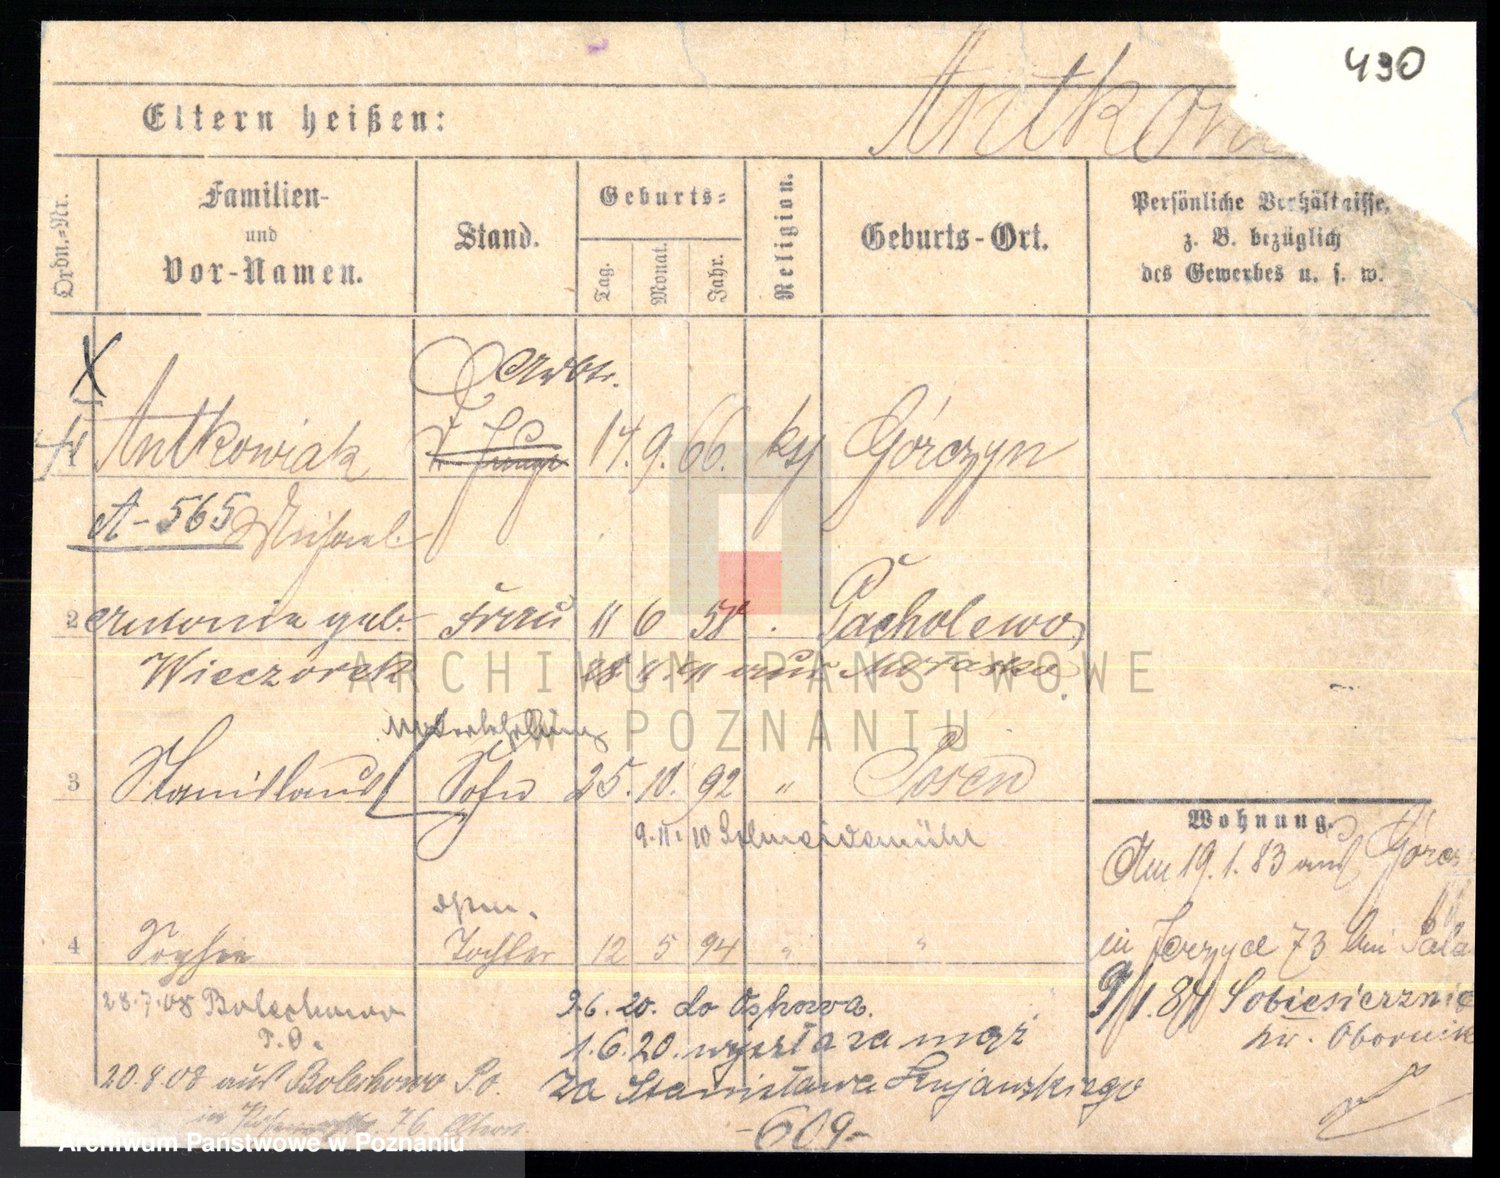 490
Antkow
Eltern heißen:
Ordn.=Nr.
Familien-
und
Vor-Namen.
Stand.
Geburts=
Tag.
Monat.
Jahr.
Religion.
Geburts-Ort.
Persönliche Verhältnisse,
z. B. bezüglich
des Gewerbes u. s. w.
X
Arbtr.
1 Antkowiak 14. 9. 66. kth Górczyn
A-565 Michael
2 Antonie geb. Frau 11 6 58 Pacholewo
Wieczorek 28 11 aus Morasko
3 Stanislaus Sohn 25. 10. 92 " Posen
9. 11. 10 Schneidemühl
Wohnung.
Am 19.1.83 aus Górcz
4 Sophie Tochter 12 5 94 " "
in Jerzyce 73 bei Pala
28.7.08 Bolechowo
P.O.
9/1.84 Sobiesierznie
kr. Obornik
9.6.20. do Ostrowa.
1.6.20. wyszła za mąż
za Stanisława Kujawskiego
20.8.08 aus Bolechowo Po.
76
-609-
ARCHIWUM PAŃSTWOWE
W POZNANIU
Archiwum Państwowe w Poznaniu